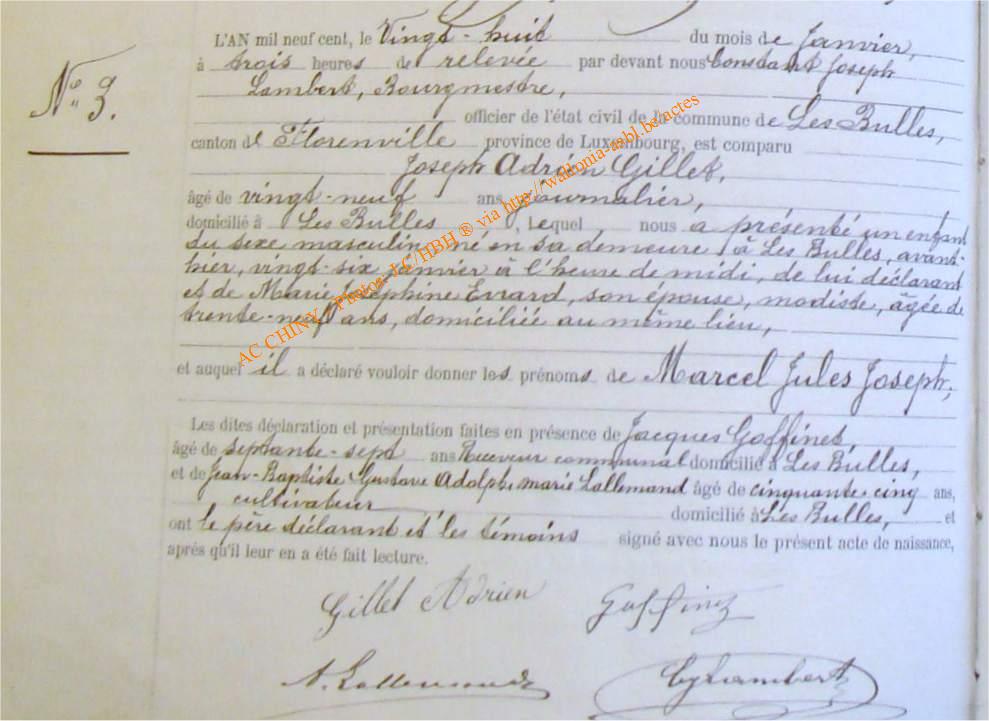 L'AN mil neuf cent, le Vingt-huit du mois de Janvier,
N° 3. à trois heures de relevée par devant nous Constant Joseph
Lambert, Bourgmestre,
officier de l'état civil de la commune de Les Bulles,
canton de Florenville province de Luxembourg, est comparu
Joseph Adrien Gillet,
âgé de vingt-neuf ans, journalier,
domicilié à Les Bulles, lequel nous a présenté un enfant
du sexe masculin, né en sa demeure, à Les Bulles, avant-
hier, vingt-six janvier à l'heure de midi, de lui déclarant
et de Marie Joséphine Evrard, son épouse, modiste, âgée de
trente-neuf ans, domiciliée au même lieu,
et auquel il a déclaré vouloir donner les prénoms de Marcel Jules Joseph,
Les dites déclaration et présentation faites en présence de Jacques Goffinet,
âgé de septante-sept ans Receveur communal domicilié à Les Bulles,
et de Jean-Baptiste Gustave Adolphe Marie Lallemand âgé de cinquante-cinq ans,
cultivateur domicilié à Les Bulles, et
ont le père déclarant et les témoins signé avec nous le présent acte de naissance,
après qu'il leur en a été fait lecture.
Gillet Adrien Goffinet
A. Lallemand CJ Lambert
AC CHINY - Photos LC/HBH ® via http://wallonia-aabl.be/actes